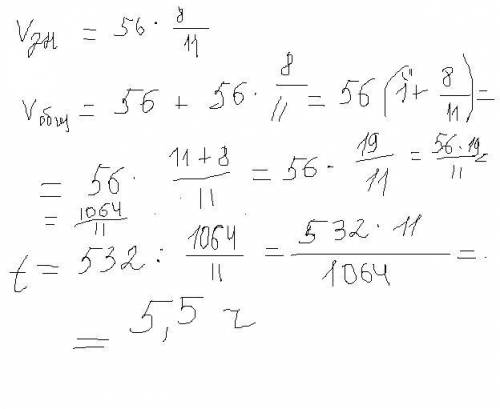 Vдн = 56 · 8/11
Vобщ = 56 + 56 · 8/11 = 56 (1¹¹ + 8/11) =
= 56 · (11+8)/11 = 56 · 19/11 = (56·19)/11 =
= 1064/11
t = 532 : 1064/11 = (532·11)/1064 =
= 5,5 ч